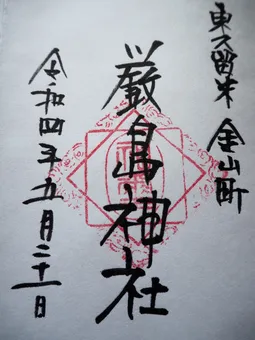 東久留米 金山町
厳島神社
令和四年五月二十一日